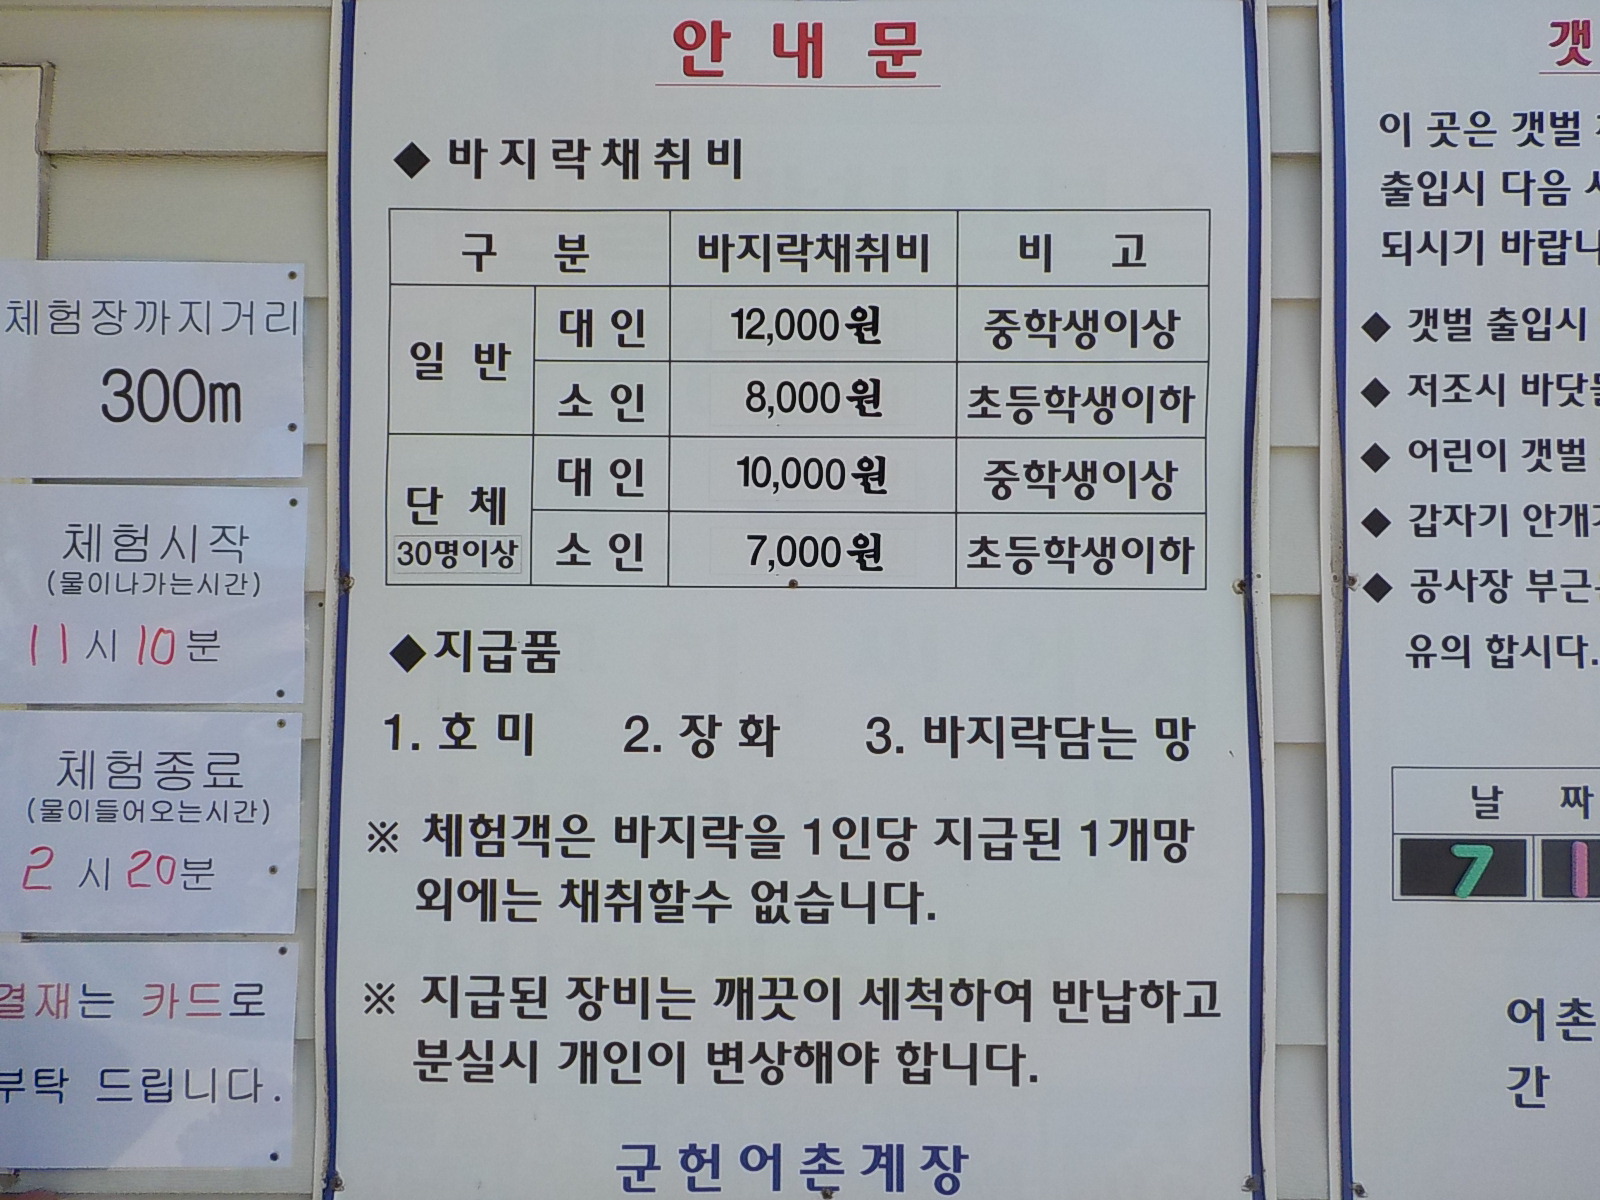 체험장까지거리
300m
체험시작
(물이나가는시간)
11시 10분
체험종료
(물이들어오는시간)
2시 20분
결재는 카드로
부탁 드립니다.
안내문
◆ 바지락채취비
구 분 바지락채취비 비 고
일 반 대 인 12,000원 중학생이상
소 인 8,000원 초등학생이하
단 체 30명이상 대 인 10,000원 중학생이상
소 인 7,000원 초등학생이하
◆지급품
1. 호 미 2. 장 화 3. 바지락담는 망
※ 체험객은 바지락을 1인당 지급된 1개망
외에는 채취할수 없습니다.
※ 지급된 장비는 깨끗이 세척하여 반납하고
분실시 개인이 변상해야 합니다.
군헌어촌계장
갯
이 곳은 갯벌
출입시 다음
되시기 바랍니
◆ 갯벌 출입시
◆ 저조시
◆ 어린이 갯벌
◆ 갑자기 안개
◆ 공사장 부근
유의 합시다.
날 짜
7 1
어촌
간